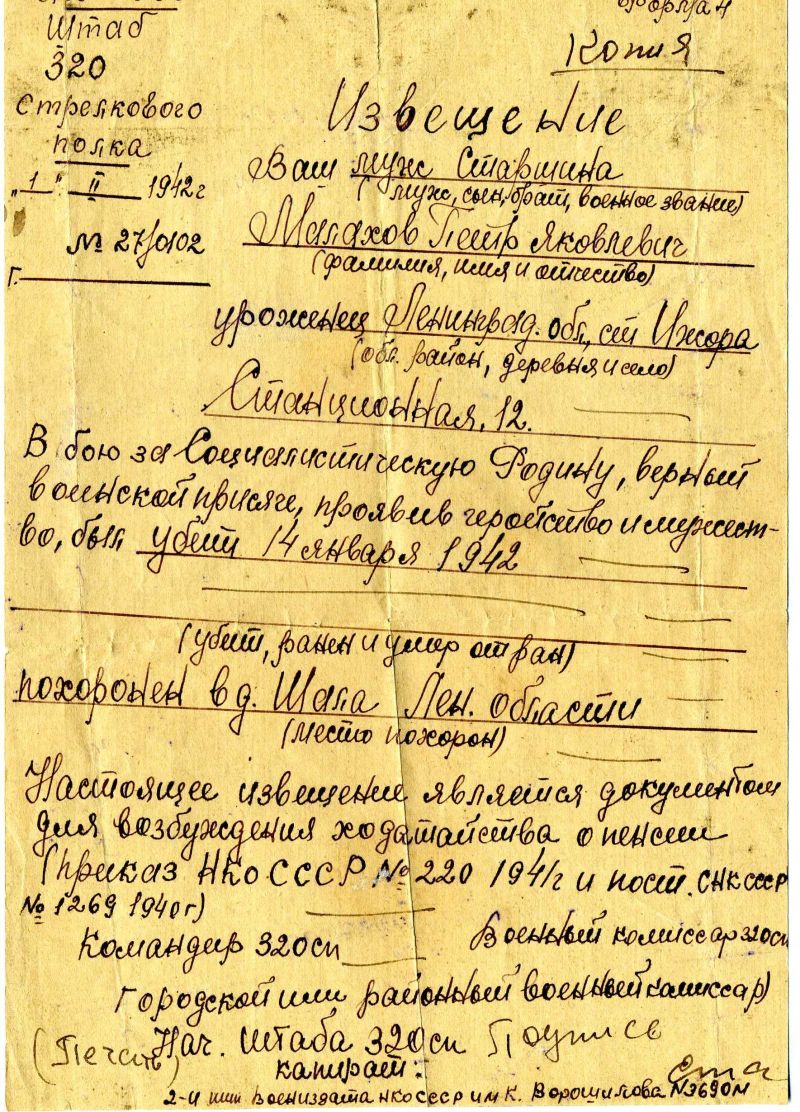 Форма 4
Штаб
320
Стрелкового
полка
"1" II 1942г
№ 27/0102
г.
Копия
Извещение
Ваш муж Старшина
(муж, сын, брат, военное звание)
Малахов Петр Яковлевич
(фамилия, имя и отчество)
урожен​ец Ленинград. обл., ст Ижора
(обл. район, деревня и село)
Станционная, 12.
В бою за Социалистическую Родину, верный
воинской присяге, проявив геройство и мужест-
во, был убит 14 января 1942
(убит, ранен и умер от ран)
похоронен в д. Шала Лен. области
(место похорон)
Настоящее извещение является документом
для возбуждения ходатайства о пенсии
(приказ НКО СССР № 220 1941г и пост. СНК СССР
№ 1269 1940г)
Командир 320сп Военный комиссар 320сп
Городской или районный военный комиссар)
(Печать) Нач. штаба 320сп Подпись
капитан:
2-й тип Воениздата НКО СССР им К. Ворошилова №3690м